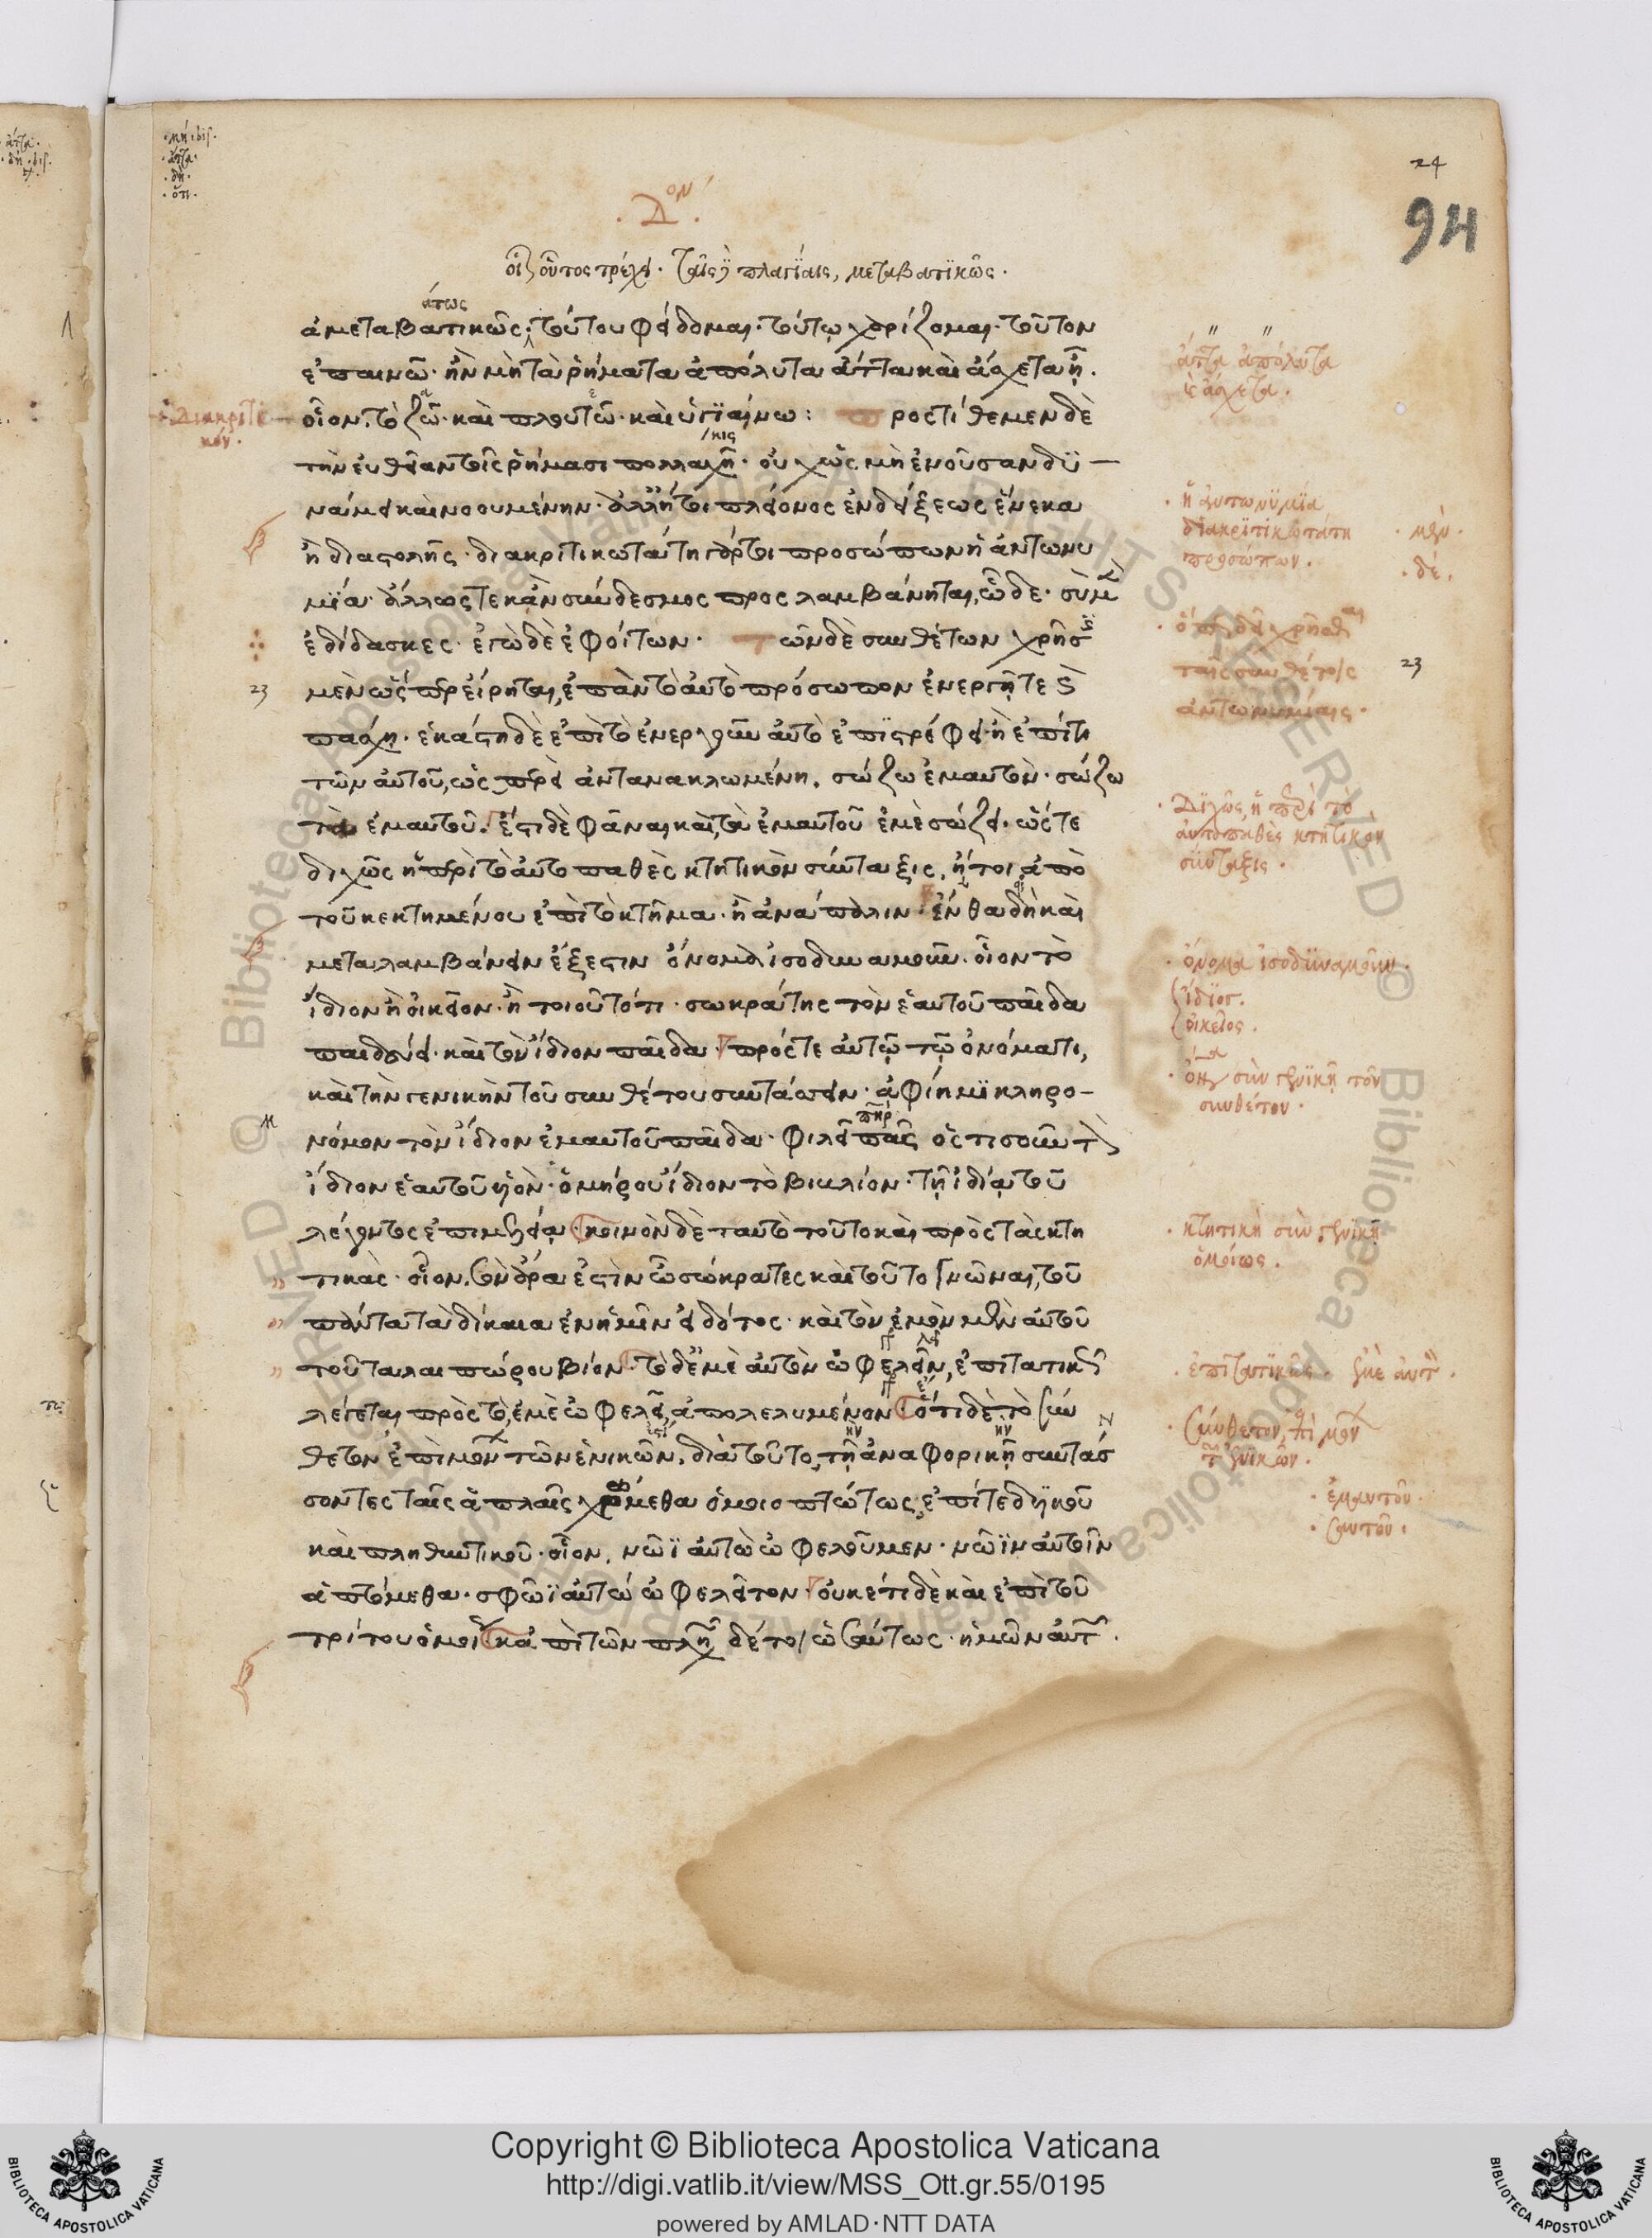 24
94
·Δον·
οἷον οὗτος τρέχει· ταῖς δὲ πλαγίαις, μεταβατικῶς·
ἀμεταβατικῶς· τούτου φείδομαι· τούτῳ χαρίζομαι· τοῦτον
ἐπαινῶ· ἢν μὴ τὰ ῥήματα ἀπόλυτα ἄττα καὶ ἄσχετα ᾖ.
οἷον, τὸ ζῶ· καὶ πλουτῶ· καὶ ὑγιαίνω: προστίθεμεν δὲ
τὴν εὐθεῖαν τοῖς ῥήμασι πολλαχῇ· οὐχ ὡς μὴ ἐνοῦσαν δυ-
νάμει καὶ νοουμένην· ἀλλ' ἤτοι πλείονος ἐνδείξεως ἕνεκα
ἢ διαστολῆς· διακριτικωτάτη γάρ τοι προσώπων ἡ ἀντωνυ
μία· ἄλλως τε κἂν σύνδεσμος προσλαμβάνηται, ὧδε· σὺ μὲν
ἐδίδασκες· ἐγὼ δὲ ἐφοίτων· τῶν δὲ συνθέτων χρῆσις
μὲν ὥσπερ εἴρηται, ἐπὰν τὸ αὐτὸ πρόσωπον ἐνεργῇ τε καὶ
πάσχῃ· ἑκάστη δὲ ἐπὶ τὸ ἐνεργοῦν αὐτὸ ἐπιστρέφει· ἢ ἐπί τι
τῶν αὐτοῦ, ὡσπερεὶ ἀντανακλωμένη. σῴζω ἐμαυτόν· σῴζω
τὰ ἐμαυτοῦ. ἔστι δὲ φάναι καὶ, τὰ ἐμαυτοῦ ἐμὲ σῴζει· ὥστε
διχῶς ἡ περὶ τὸ αὐτοπαθὲς κτητικὸν σύνταξις, ἤτοι ἀπὸ
τοῦ κεκτημένου ἐπὶ τὸ κτῆμα· ἢ ἀνάπαλιν· ἔνθα δὴ καὶ
μεταλαμβάνειν ἔξεστιν ὄνομα ἰσοδυναμοῦν· οἷον τὸ
ἴδιον ἢ οἰκεῖον· ἢ τοιοῦτό τι· σωκράτης τὸν ἑαυτοῦ παῖδα
παιδεύει· καὶ τὸν ἴδιον παῖδα· πρός τε αὐτῷ τῷ ὀνόματι,
καὶ τὴν γενικὴν τοῦ συνθέτου συντάττειν· ἀφίημι κληρο-
νόμον τὸν ἴδιον ἐμαυτοῦ παῖδα· φιλεῖ πᾶς ὁστισοῦν τὸν
ἴδιον ἑαυτοῦ υἱόν· ὁμήρου ἴδιον τὸ βιβλίον· τῇ ἰδίᾳ τοῦ
λέγοντος ἐπιμελείᾳ· κοινὸν δὲ ταὐτὸ τοῦτο καὶ πρὸς τὰς κτη
τικὰς· οἷον, σὸν ἄρα ἐστὶν ὦ σώκρατες καὶ τοῦτο γνῶναι, τοῦ
πάντα τὰ δίκαια ἐν ἡμῖν εἰδότος· καὶ τὸν ἐμὸν μὲν αὐτοῦ
τοῦ ταλαιπώρου βίον· τὸ δ' ἐμὲ αὐτὸν ὠφελεῖν, ἐπιτατικῶς
λέγεται πρὸς τὸ, ἐμὲ ὠφελεῖ, ἀπολελυμένον· ὅτι δὲ τὸ σύν
θετον ἐπὶ μόνων τῶν ἑνικῶν, διὰ τοῦτο, τῇ ἀναφορικῇ συντάσ
σοντες ταῖς ἁπλαῖς χρώμεθα ὁμοιοπτώτως, ἐπί τε δυϊκοῦ
καὶ πληθυντικοῦ· οἷον, νῶϊ αὐτὼ ὠφελοῦμεν· νῶϊν αὐτοῖν
ἁπτόμεθα· σφῶϊ αὐτὼ ὠφελεῖτον· οὐκέτι δὲ καὶ ἐπὶ τοῦ
τρίτου ὁμοίως· κἀπὶ τῶν πληθ δέ τοι ὡσαύτως· ἡμῶν αὐτῶν.
·Διακριτι
κόν·
23
ἄττα ἀπόλυτα
καὶ ἄσχετα.
· ἡ ἀντωνυμία
διακριτικωτάτη
προσώπων.
· μέν·
· δέ.
· ὁπηδεῖ χρῆσθαι
ταῖς συνθέτοις
ἀντωνυμίαις·
23
· Διχῶς, ἡ περὶ τὸ
αὐτοπαθὲς κτητικὸν
σύνταξις·
· ὄνομα ἰσοδυναμοῦν·
ἴδιος.
οἰκεῖος.
· ὄνομα σὺν γενικῇ τῶν
συνθέτων·
· κτητικὴ σὺν γενικῇ
ὁμοίως.
· ἐπιτατικῶς· ἐμὲ αὐτόν·
· Σύνθετον, ἐπὶ μόνων
τῶν ἑνικῶν.
· ἐμαυτοῦ·
· σαυτοῦ·
Copyright © Biblioteca Apostolica Vaticana
http://digi.vatlib.it/view/MSS_Ott.gr.55/0195
powered by AMLAD·NTT DATA
BIBLIOTECA APOSTOLICA VATICANA
BIBLIOTECA APOSTOLICA VATICANA